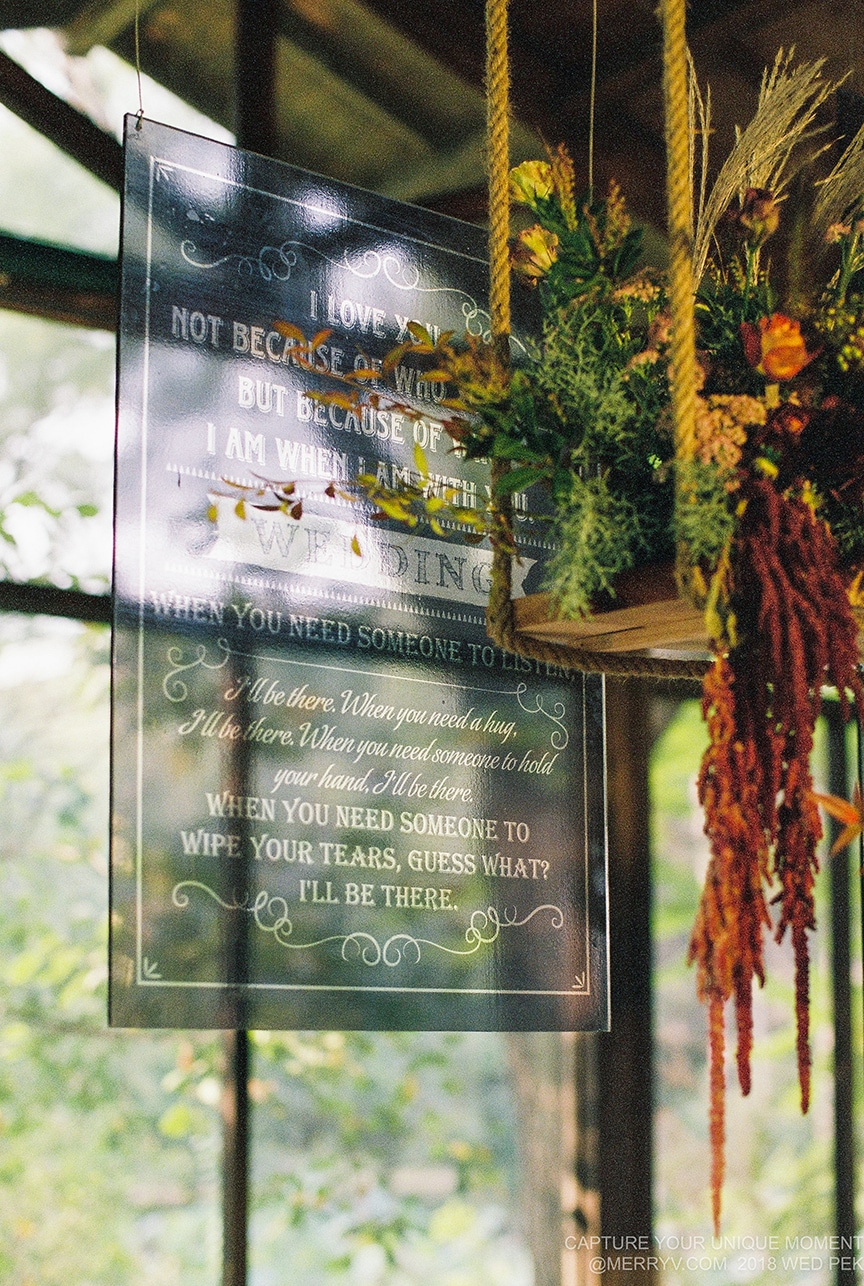 I LOVE YOU
NOT BECAUSE OF WHO
BUT BECAUSE OF
I AM WHEN I AM WITH YOU.
WEDDING
WHEN YOU NEED SOMEONE TO LISTEN,
I'll be there. When you need a hug,
I'll be there. When you need someone to hold
your hand, I'll be there.
WHEN YOU NEED SOMEONE TO
WIPE YOUR TEARS, GUESS WHAT?
I'LL BE THERE.
CAPTURE YOUR UNIQUE MOMENT
@MERRYV.COM 2018 WED PEK